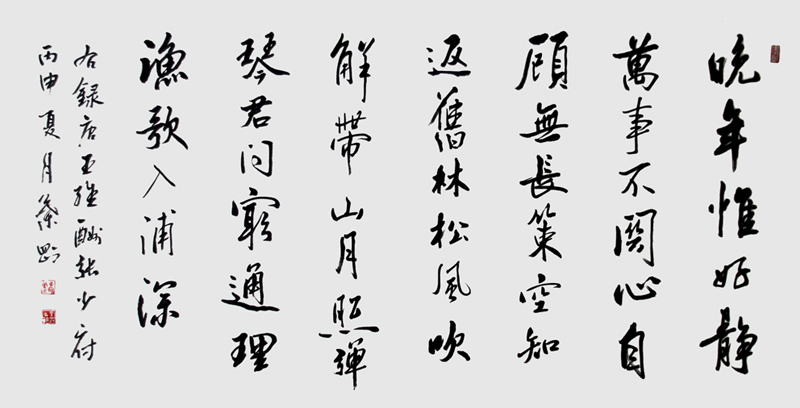 晚年惟好静
萬事不関心自
顧無長策空知
返舊林松風吹
解帶山月照彈
琴君问窮通理
漁歌入浦深
右録唐王維酬張少府
丙申夏月